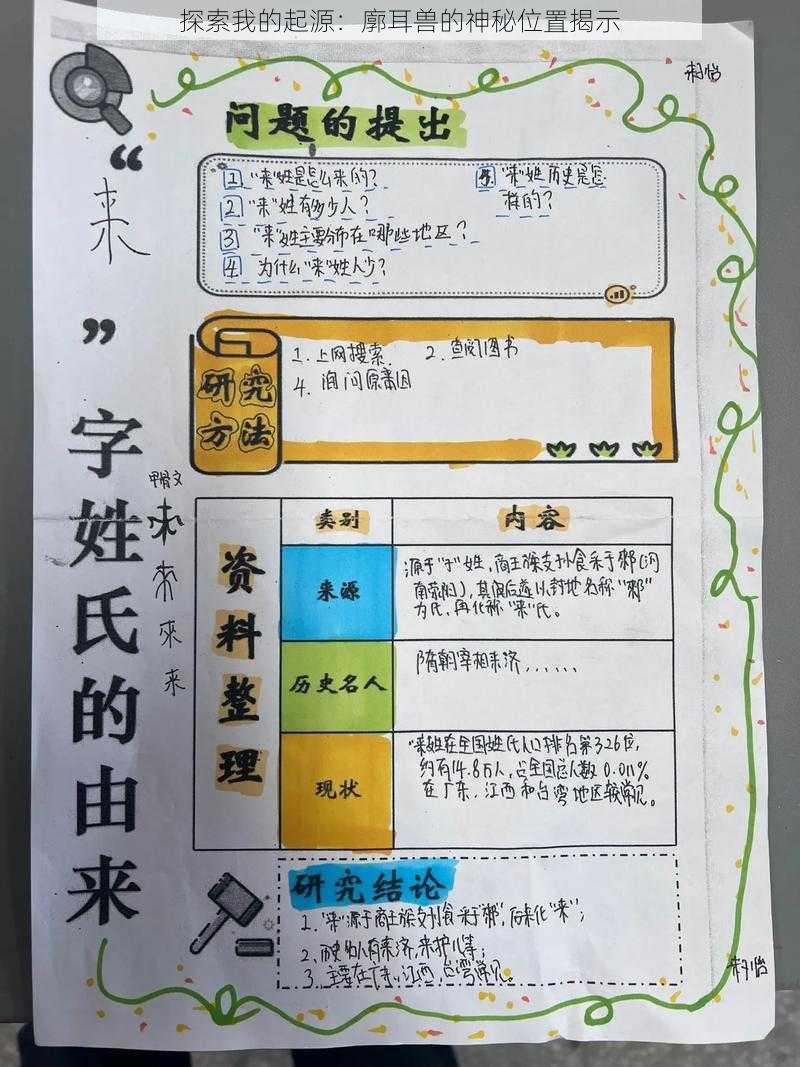 探索我的起源：廓耳兽的神秘位置揭示
来怡
“来”字姓氏的由来
甲骨文
来
來
来
问题的提出
1 “来”姓是怎么来的？
2 “来”姓有多少人？
3 “来”姓主要分布在哪些地区？
4 为什么“来”姓人少？
5. “来”姓历史是怎样的？
研究方法
1. 上网搜索
2. 查阅图书
4. 询问原因
资料整理
类别
内容
来源
源于“子”姓，商王族支孙食采于郲(河
南荥阳)，其后遂以封地名称“郲”
为氏，再化称“来”氏。
历史名人
隋朝宰相来济，......
现状
“来”姓在全国姓氏人口排名第326位，
约有14.8万人，占全国总人数0.011%
在广东、江西和台湾地区较常见。
研究结论
1. “来”源于商王族支孙食采于“郲”，后来化“来”；
2、历史名人有来济，来护儿等；
3、主要在广东、江西、台湾常见。
来怡